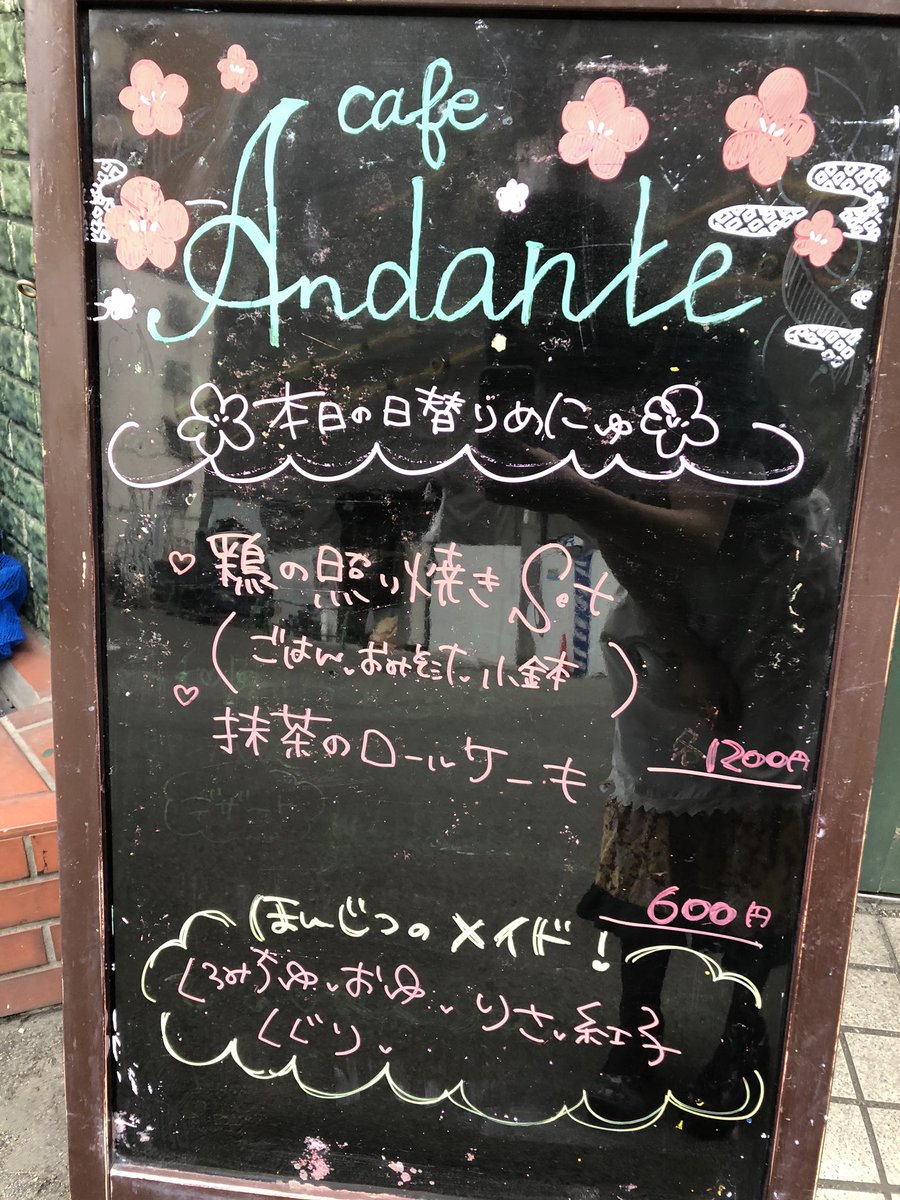 cafe
Andante
本日の日替りめにゅ
鶏の照り焼き Set
(ごはん、おみそした、小鉢)
抹茶のロールケーキ
1200円
600円
ほんじつのメイド!
くるみぢゅ、おゆ、りさ、紅子
くぐり、